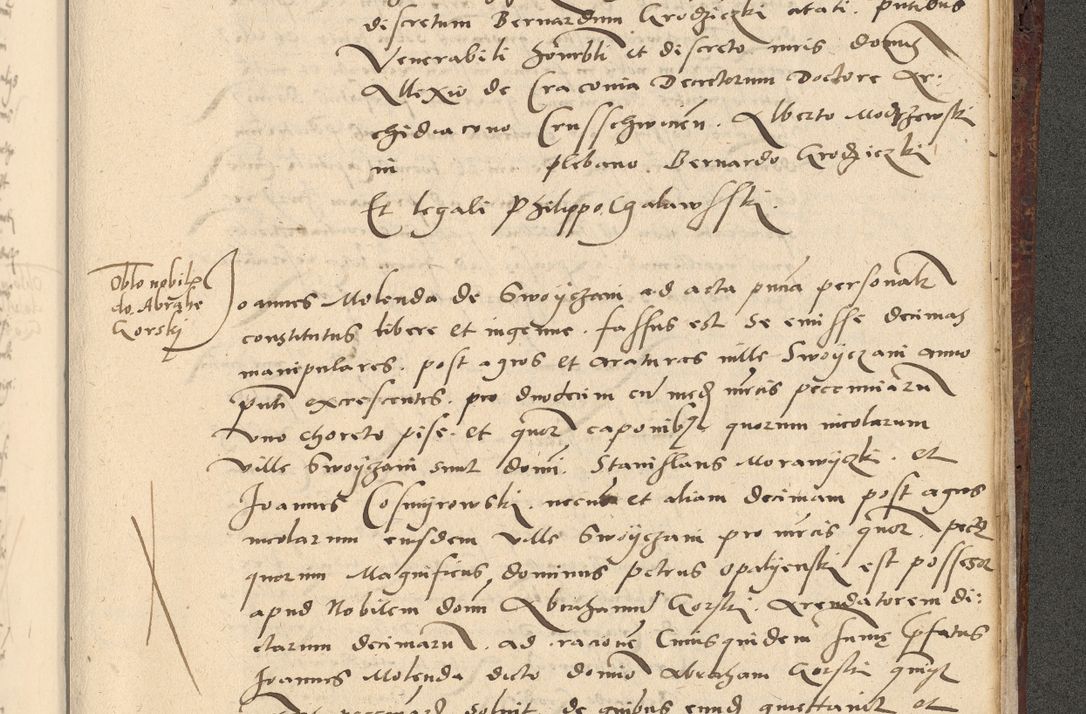 discretum Bernardum Grodziczki atati. putibus
Venerabili honorbli et discreto viris dominis
Allexio de Cracovia Decretorum Doctore Ar-
chidiacono Crusschwicen. Alberto Modrzewski
in plebano. Bernardo Grodziczki
Et legali Philippo Chalawsski.
Oblo nobilis
do. Abrahe
Gorski
Joannes Molenda de Swoyczani ad acta pntia personalr
constitutus libere et ingenue. fassus est se emisse decimas
manipulares. post agros et araturas ville Swoyczani anno
pnti excrescentes. pro duodecim cu med mrcis pecuniaru
uno choreto pise. et quor caponibus quorum incolarum
ville Swoyczani sunt domi. Stanislaus Morawyczki. et
Joannes Cosmyrowski. necnon et aliam decimam post agros
incolarum eiusdem ville Swoyczani pro mrcis quor. pecz
quorum Magnificus dominus petrus opalyenski est possessor
apud Nobilem domi Abrahamu Gorski. Arendatorem di:
ctarum decimaru. ad racione Cuiusquidem summe prefatus
Joannes Molenda dicto domino Abraham Gorski
solvit de quibus eund quittavit et